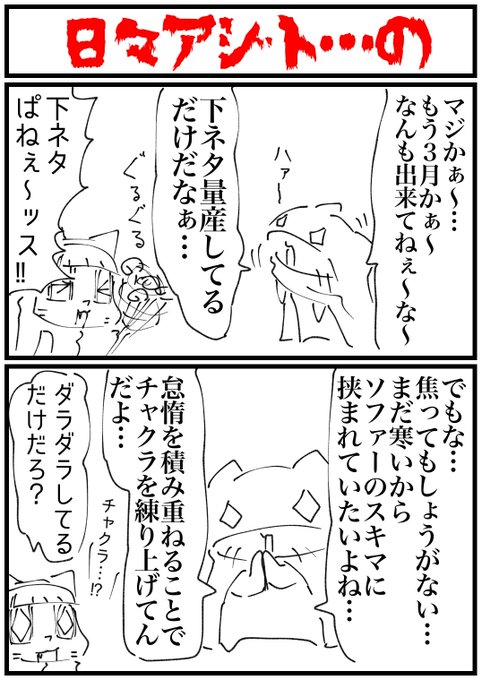 日々アシ・ト・・・の
マジかぁ～…
もう３月かぁ～
なんも出来てねぇ～な～
ハァ～
下ネタ量産してる
だけだなぁ…
ぐるぐる
下ネタ
ぱねぇ～ッス!!
でもな…
焦ってもしょうがない…
まだ寒いから
ソファーのスキマに
挟まれていたいよね…
怠惰を積み重ねることで
チャクラを練り上げてん
だよ…
チャクラ…!?
ダラダラしてる
だけだろ？